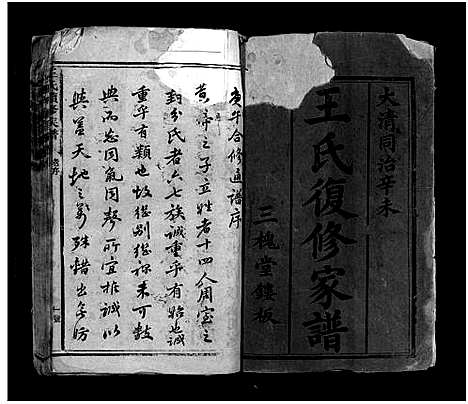 大清同治辛未
王氏復修家譜
三槐堂鏤板
庚午合修通譜序
黃帝之子立姓者十四人周室之
封分氏者六七族誠重乎有始也誠
重乎有類也故從別從流未可數
典而忘同氣同聲所宜推誠以
與蓋天地之萬殊錯出無方